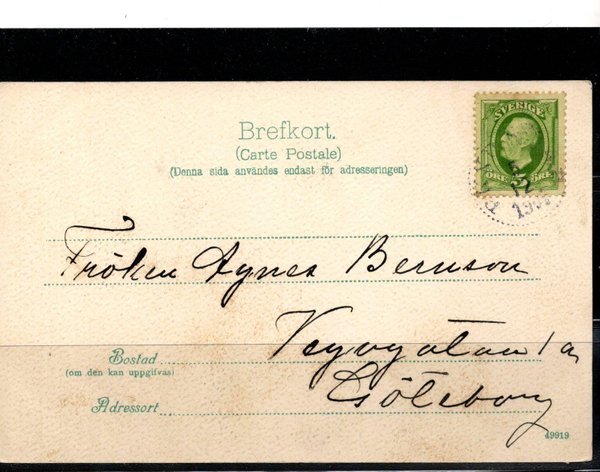 SVERIGE
5
ÖRE ÖRE
Brefkort.
(Carte Postale)
(Denna sida användes endast för adresseringen)
Fröken Agnes Bernson
1a
Bostad
(om den kan uppgifvas)
Göteborg
Adressort
49919